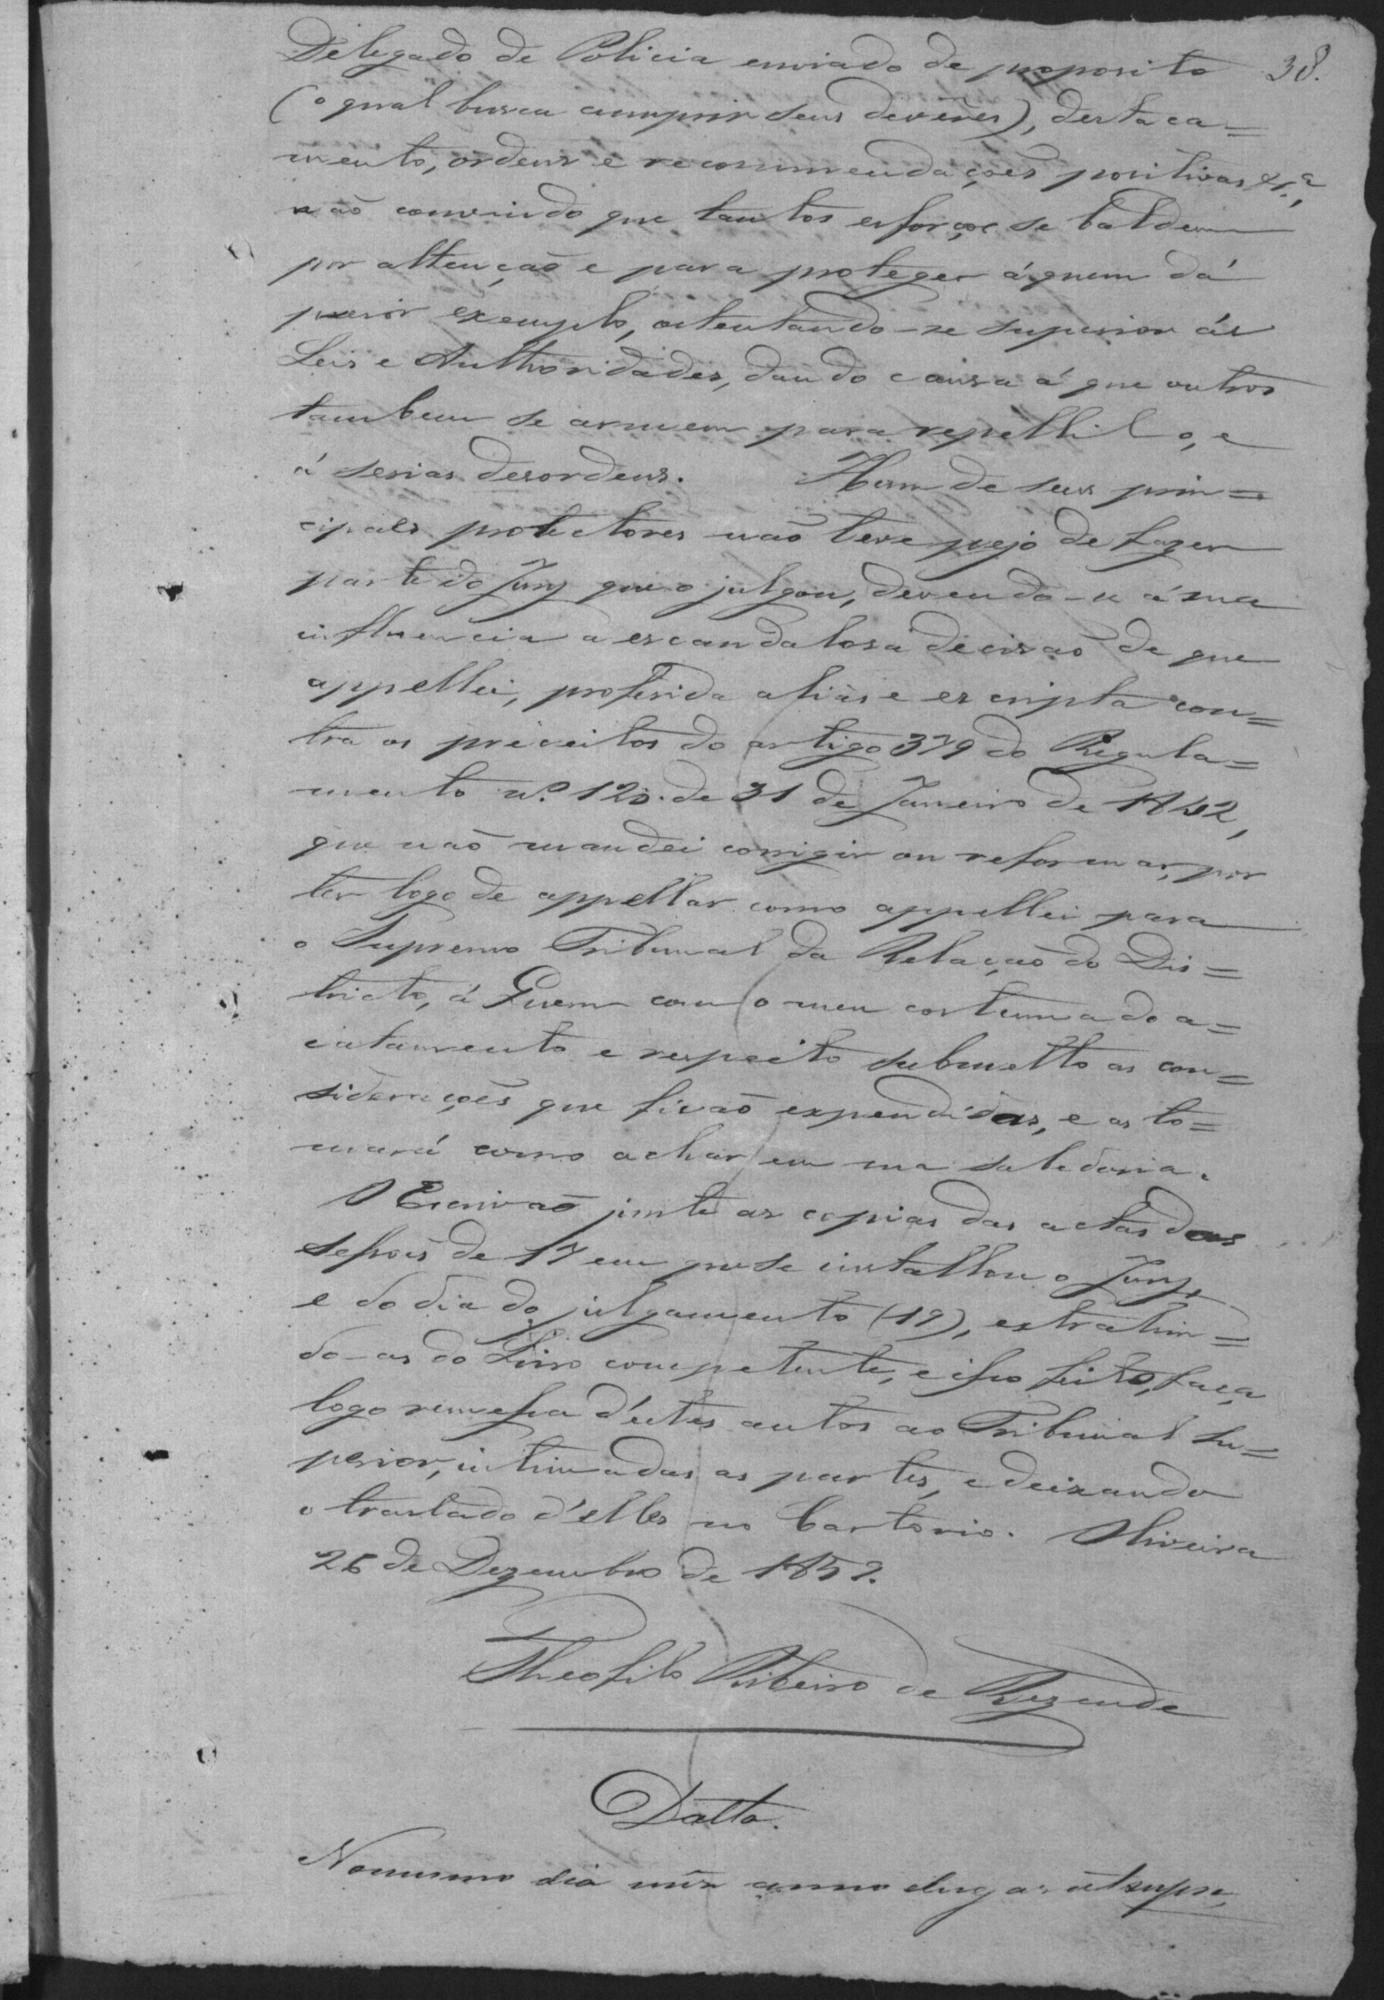 Delegado de Policia enviado de proposito 38.
(o qual busca cumprir seus devêres), destaca=
mento, ordens e recommendações positivas &.ª,
não convindo que tantos esforços se baldem
por attenção e para proteger á quem dá
peior exemplo, ostentando-se superior ás
Leis e Authoridades, dando causa á que outros
tambem se armem para repellil-o, e
á serias desordens. Hum de seus prin=
cipaes protectores não teve pejo de fazer
parte do Jury que o julgou, devendo-se á sua
influencia a escandalosa decisão de que
appellei, proferida aliàs e escripta con=
tra os preceitos do artigo 379 do Regula=
mento n.º 120. de 31 de Janeiro de 1842,
que não mandei corrigir ou reformar, por
ter logo de appellar como appellei para
o Supremo Tribunal da Relação do Dis=
tricto, á Quem com o meu costumado a=
catamento e respeito submetto as con=
siderações que ficão expendidas, e as to=
mará como achar em sua sabedoria.
O Escrivão junte as copias das actas das
depois de 17 em que se installou o Jury,
e do dia do julgamento (19), extrahin=
do-as do Livro competente, e isso feito, faça
logo remessa d'éstes autos ao Tribunal Su=
perior, intimadas as partes, e deixando
o traslado d'elles no Cartorio. Oliveira
26 de Dezembro de 1852.
Theofilo Ribeiro de Rezende
Datta.
No mesmo dia mês anno elugar utsupra,